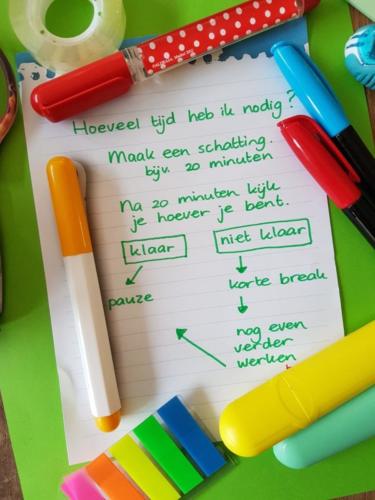 Hoeveel tijd heb ik nodig?
Maak een schatting.
bijv. 20 minuten
Na 20 minuten kijk
je hoever je bent.
klaar
niet klaar
pauze
korte break
nog even
verder
werken